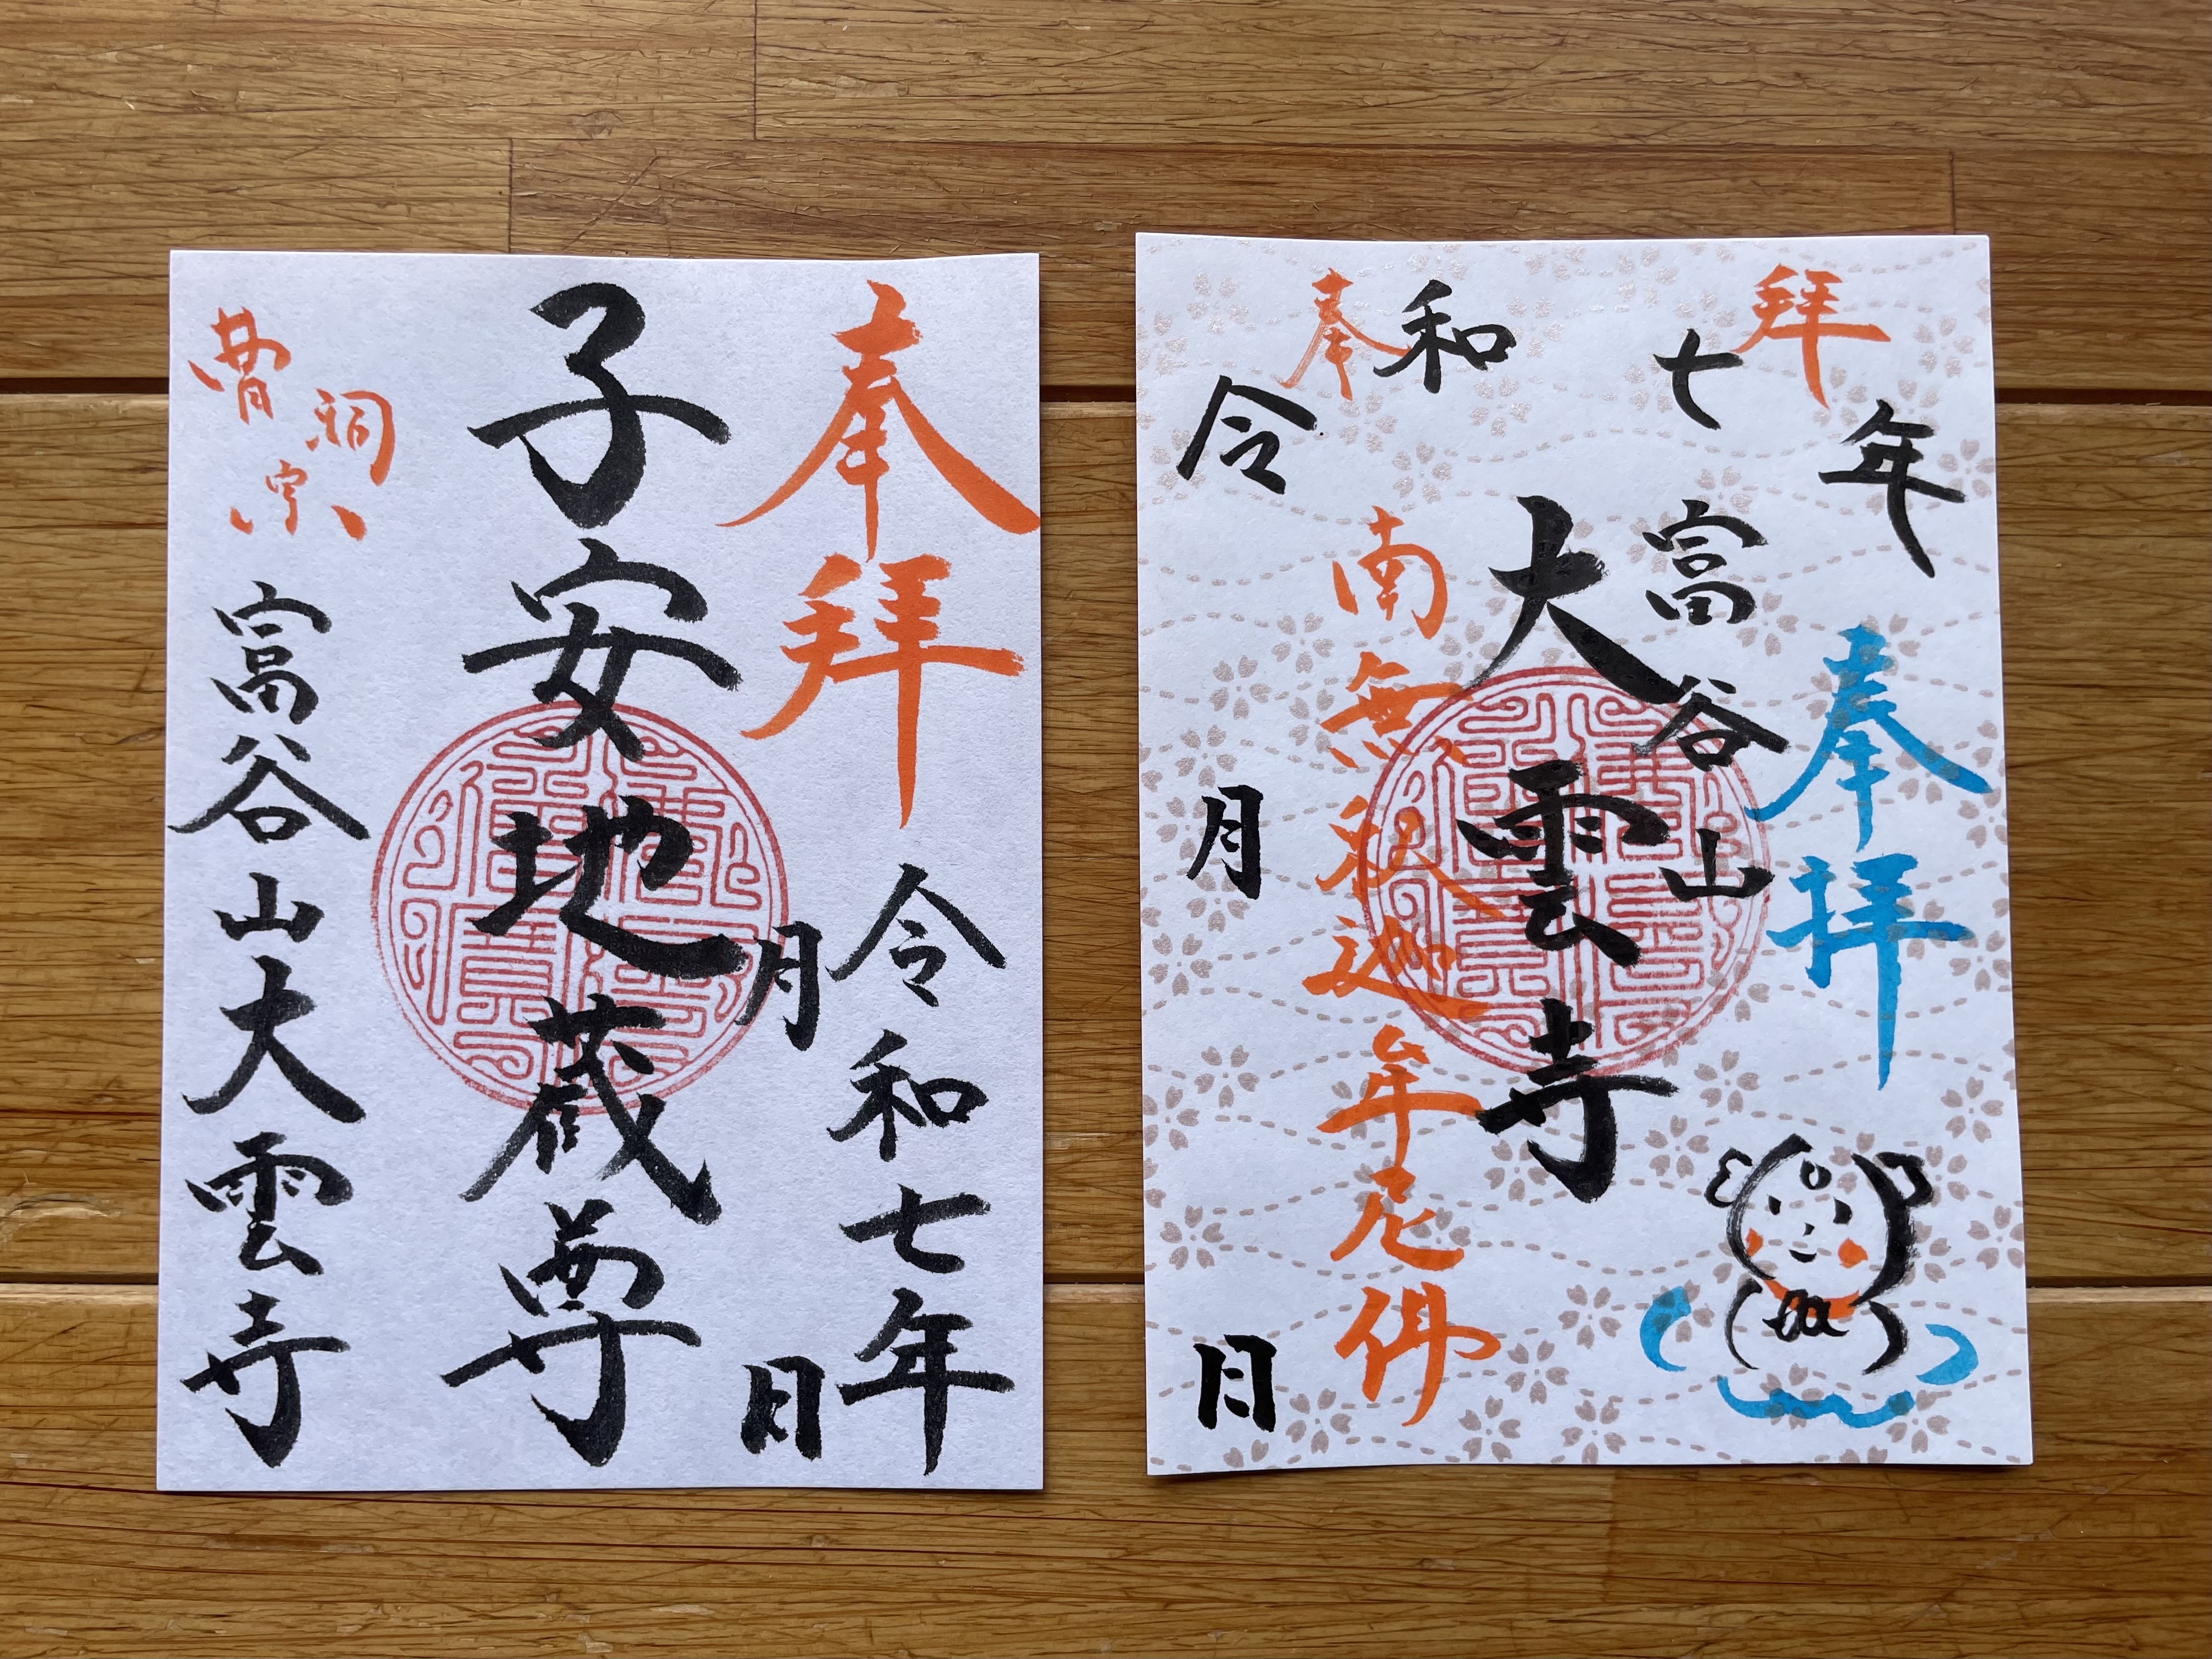 奉拝
令和七年
月 日
子安地蔵尊
曹洞宗
富谷山大雲寺
奉拝
令和七年
奉拝
富谷山
大雲寺
南無釈迦牟尼佛
月 日